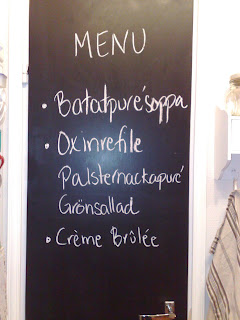 MENU
• Batatpurésoppa
• Oxinrefile
Palsternackapuré
Grönsallad
• Crème Brûlée